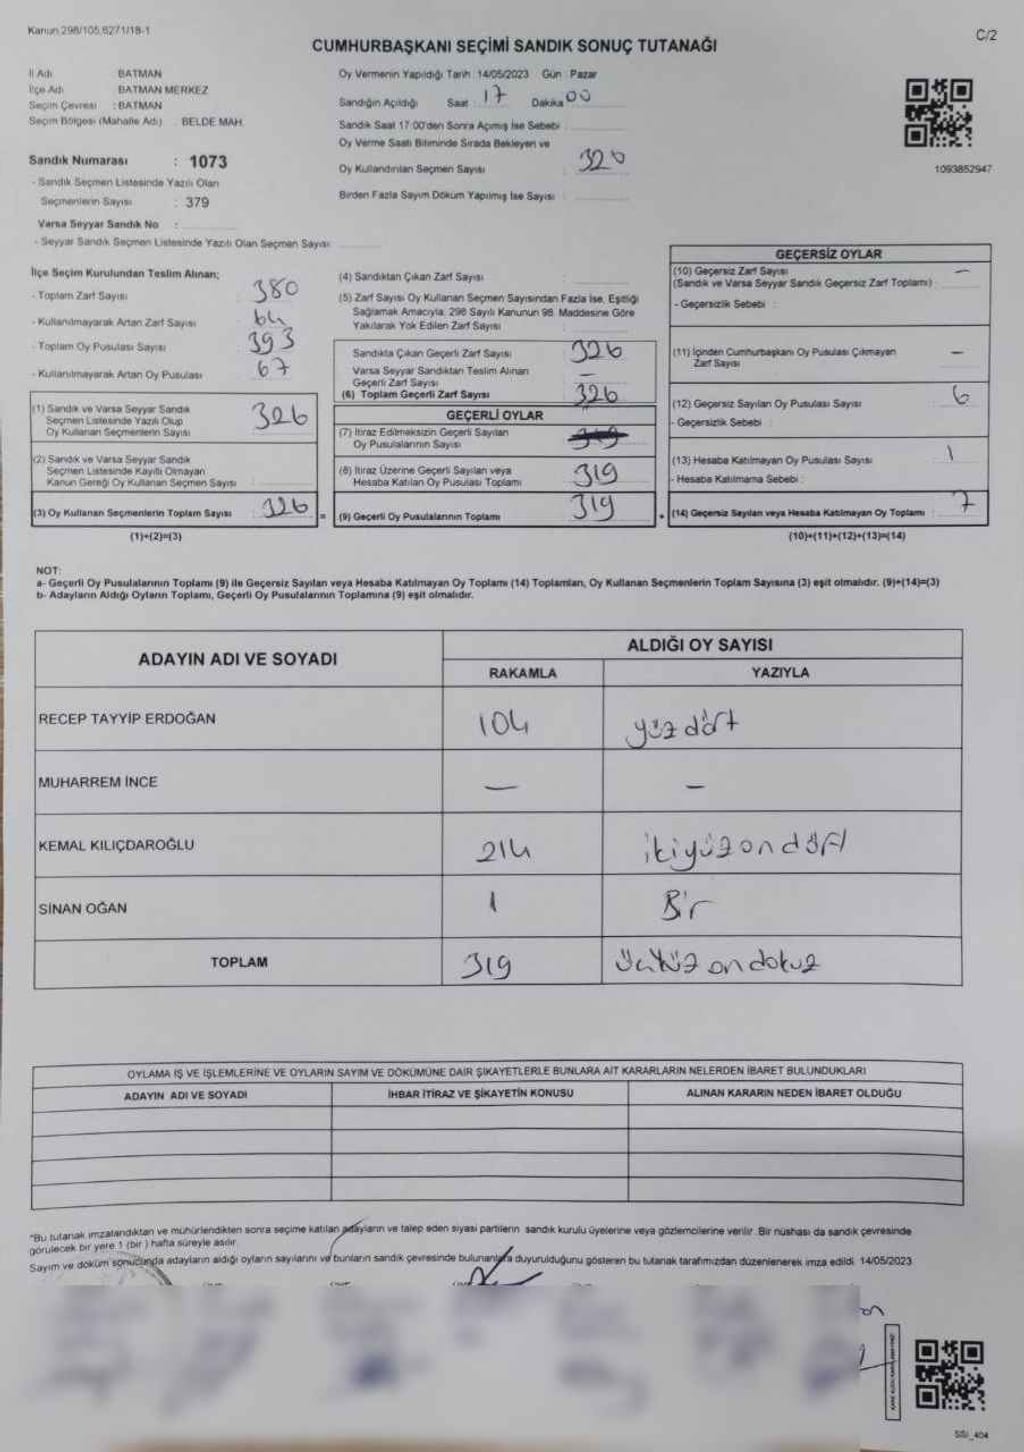 Kanun 298/105,6271/18-1
C/2
CUMHURBAŞKANI SEÇİMİ SANDIK SONUÇ TUTANAĞI
İl Adı BATMAN
İlçe Adı BATMAN MERKEZ
Seçim Çevresi : BATMAN
Seçim Bölgesi (Mahalle Adı) BELDE MAH.
Sandık Numarası : 1073
- Sandık Seçmen Listesinde Yazılı Olan
Seçmenlerin Sayısı : 379
Varsa Seyyar Sandık No :
- Seyyar Sandık Seçmen Listesinde Yazılı Olan Seçmen Sayısı
Oy Vermenin Yapıldığı Tarih : 14/05/2023 Gün : Pazar
Sandığın Açıldığı Saat : 17 Dakika 00
Sandık Saat 17:00'den Sonra Açılmış İse Sebebi
Oy Verme Saati Bitiminde Sırada Bekleyen ve
Oy Kullandırılan Seçmen Sayısı : 326
Birden Fazla Sayım Döküm Yapılmış İse Sayısı :
1093852947
İlçe Seçim Kurulundan Teslim Alınan;
- Toplam Zarf Sayısı 380
- Kullanılmayarak Artan Zarf Sayısı 64
- Toplam Oy Pusulası Sayısı 393
- Kullanılmayarak Artan Oy Pusulası 67
(1) Sandık ve Varsa Seyyar Sandık
Seçmen Listesinde Yazılı Olup
Oy Kullanan Seçmenlerin Sayısı 326
(2) Sandık ve Varsa Seyyar Sandık
Seçmen Listesinde Kayıtlı Olmayan
Kanun Gereği Oy Kullanan Seçmen Sayısı
(3) Oy Kullanan Seçmenlerin Toplam Sayısı 326 =
(1)+(2)=(3)
(4) Sandıktan Çıkan Zarf Sayısı
(5) Zarf Sayısı Oy Kullanan Seçmen Sayısından Fazla İse, Eşitliği
Sağlamak Amacıyla, 298 Sayılı Kanunun 98. Maddesine Göre
Yakılarak Yok Edilen Zarf Sayısı
Sandıkta Çıkan Geçerli Zarf Sayısı 326
Varsa Seyyar Sandıktan Teslim Alınan
Geçerli Zarf Sayısı -
(6) Toplam Geçerli Zarf Sayısı 326
GEÇERLİ OYLAR
(7) İtiraz Edilmeksizin Geçerli Sayılan
Oy Pusulalarının Sayısı
(8) İtiraz Üzerine Geçerli Sayılan veya
Hesaba Katılan Oy Pusulası Toplamı 319
(9) Geçerli Oy Pusulalarının Toplamı 319 +
GEÇERSİZ OYLAR
(10) Geçersiz Zarf Sayısı -
(Sandık ve Varsa Seyyar Sandık Geçersiz Zarf Toplamı)
- Geçersizlik Sebebi :
(11) İçinden Cumhurbaşkanı Oy Pusulası Çıkmayan
Zarf Sayısı -
(12) Geçersiz Sayılan Oy Pusulası Sayısı 6
- Geçersizlik Sebebi :
(13) Hesaba Katılmayan Oy Pusulası Sayısı 1
- Hesaba Katılmama Sebebi :
(14) Geçersiz Sayılan veya Hesaba Katılmayan Oy Toplamı 7
(10)+(11)+(12)+(13)=(14)
NOT:
a- Geçerli Oy Pusulalarının Toplamı (9) ile Geçersiz Sayılan veya Hesaba Katılmayan Oy Toplamı (14) Toplamları, Oy Kullanan Seçmenlerin Toplam Sayısına (3) eşit olmalıdır. (9)+(14)=(3)
b- Adayların Aldığı Oyların Toplamı, Geçerli Oy Pusulalarının Toplamına (9) eşit olmalıdır.
ADAYIN ADI VE SOYADI ALDIĞI OY SAYISI
RAKAMLA YAZIYLA
RECEP TAYYİP ERDOĞAN 104 yüz dört
MUHARREM İNCE - -
KEMAL KILIÇDAROĞLU 214 ikiyüz on dört
SİNAN OĞAN 1 Bir
TOPLAM 319 üçyüz on dokuz
OYLAMA İŞ VE İŞLEMLERİNE VE OYLARIN SAYIM VE DÖKÜMÜNE DAİR ŞİKAYETLERLE BUNLARA AİT KARARLARIN NELERDEN İBARET BULUNDUKLARI
ADAYIN ADI VE SOYADI İHBAR İTİRAZ VE ŞİKAYETİN KONUSU ALINAN KARARIN NEDEN İBARET OLDUĞU
"Bu tutanak imzalandıktan ve mühürlendikten sonra seçime katılan adayların ve talep eden siyasi partilerin sandık kurulu üyelerine veya gözlemcilerine verilir. Bir nüshası da sandık çevresinde
görülecek bir yere 1 (bir) hafta süreyle asılır.
Sayım ve döküm sonucunda adayların aldığı oyların sayılarını ve bunların sandık çevresinde bulunanlara duyurulduğunu gösteren bu tutanak tarafımızdan düzenlenerek imza edildi. 14/05/2023
SSI_404